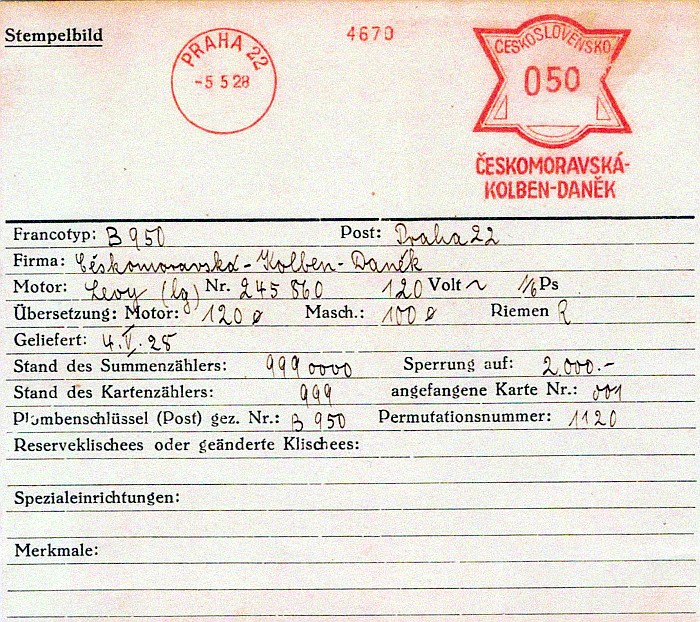 Stempelbild
PRAHA 22
-5 5 28
4670
ČESKOSLOVENSKO
050
ČESKOMORAVSKÁ-
KOLBEN-DANĚK
Francotyp: B 950 Post: Praha 22
Firma: Českomoravská-Kolben-Daněk
Motor: Levy (lg) Nr. 245860 120 Volt ~ 1/6 Ps
Übersetzung: Motor: 120 ø Masch.: 100 ø Riemen R
Geliefert: 4.V.28
Stand des Summenzählers: 9990000 Sperrung auf: 2.000.-
Stand des Kartenzählers: 999 angefangene Karte Nr.: 001
Plombenschlüssel (Post) gez. Nr.: B 950 Permutationsnummer: 1120
Reserveklischees oder geänderte Klischees:
Spezialeinrichtungen:
Merkmale: